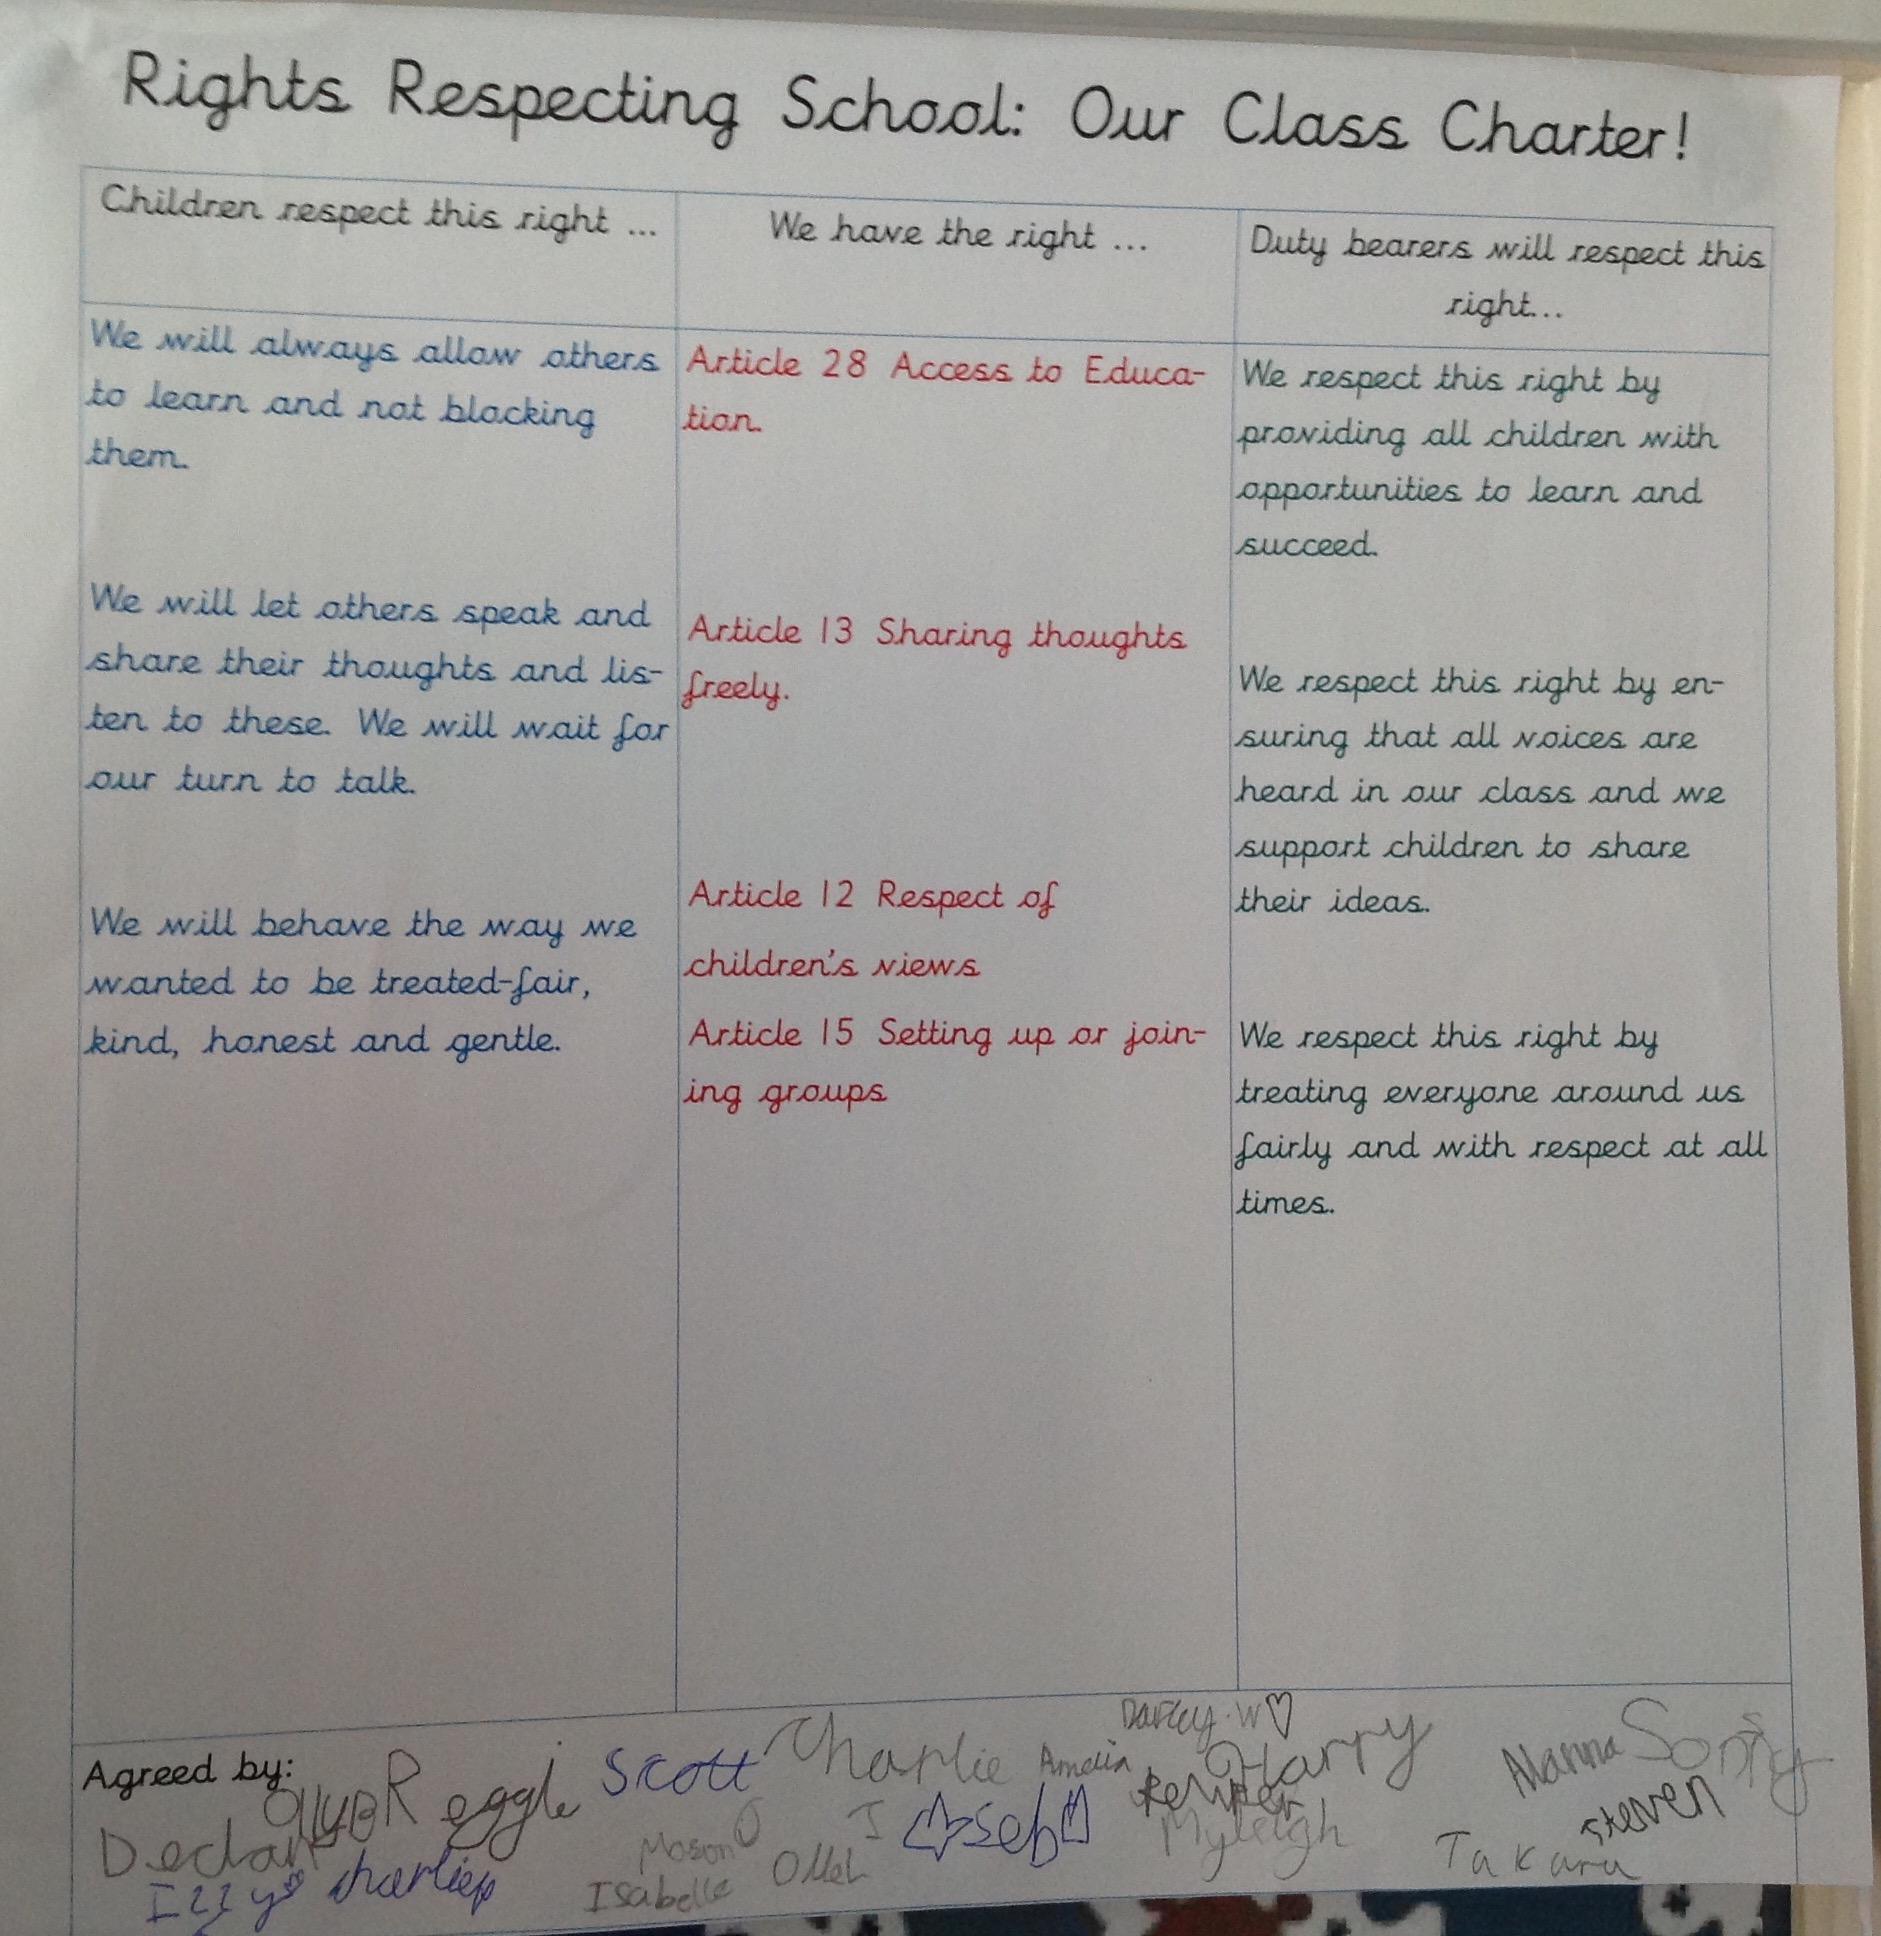 Rights Respecting School: Our Class Charter!
Children respect this right ...
We will always allow others
to learn and not blocking
them.
We will let others speak and
share their thoughts and lis-
ten to these. We will wait for
our turn to talk.
We will behave the way we
wanted to be treated-fair,
kind, honest and gentle.
We have the right ...
Article 28 Access to Educa-
tion.
Article 13 Sharing thoughts
freely.
Article 12 Respect of
children's views
Article 15 Setting up or join-
ing groups
Duty bearers will respect this
right...
We respect this right by
providing all children with
opportunities to learn and
succeed.
We respect this right by en-
suring that all voices are
heard in our class and we
support children to share
their ideas.
We respect this right by
treating everyone around us
fairly and with respect at all
times.
Agreed by:
Darcey.W
Scott Charlie Amelia Harry Alanna Sonny
Seb Myleigh Steven
Declan Mason Takara
Izzy charliep Isabelle